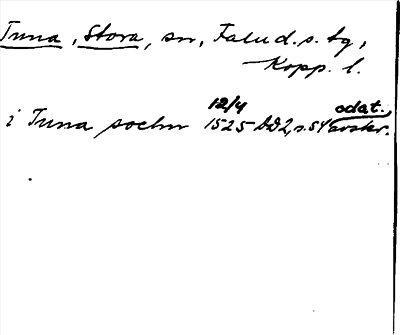 Tuna, Stora, sn, Falu d.s. tg,
Kopp. l.
i Tuna sochn 12/4 1525 DD2, s. 54 odat. avskr.